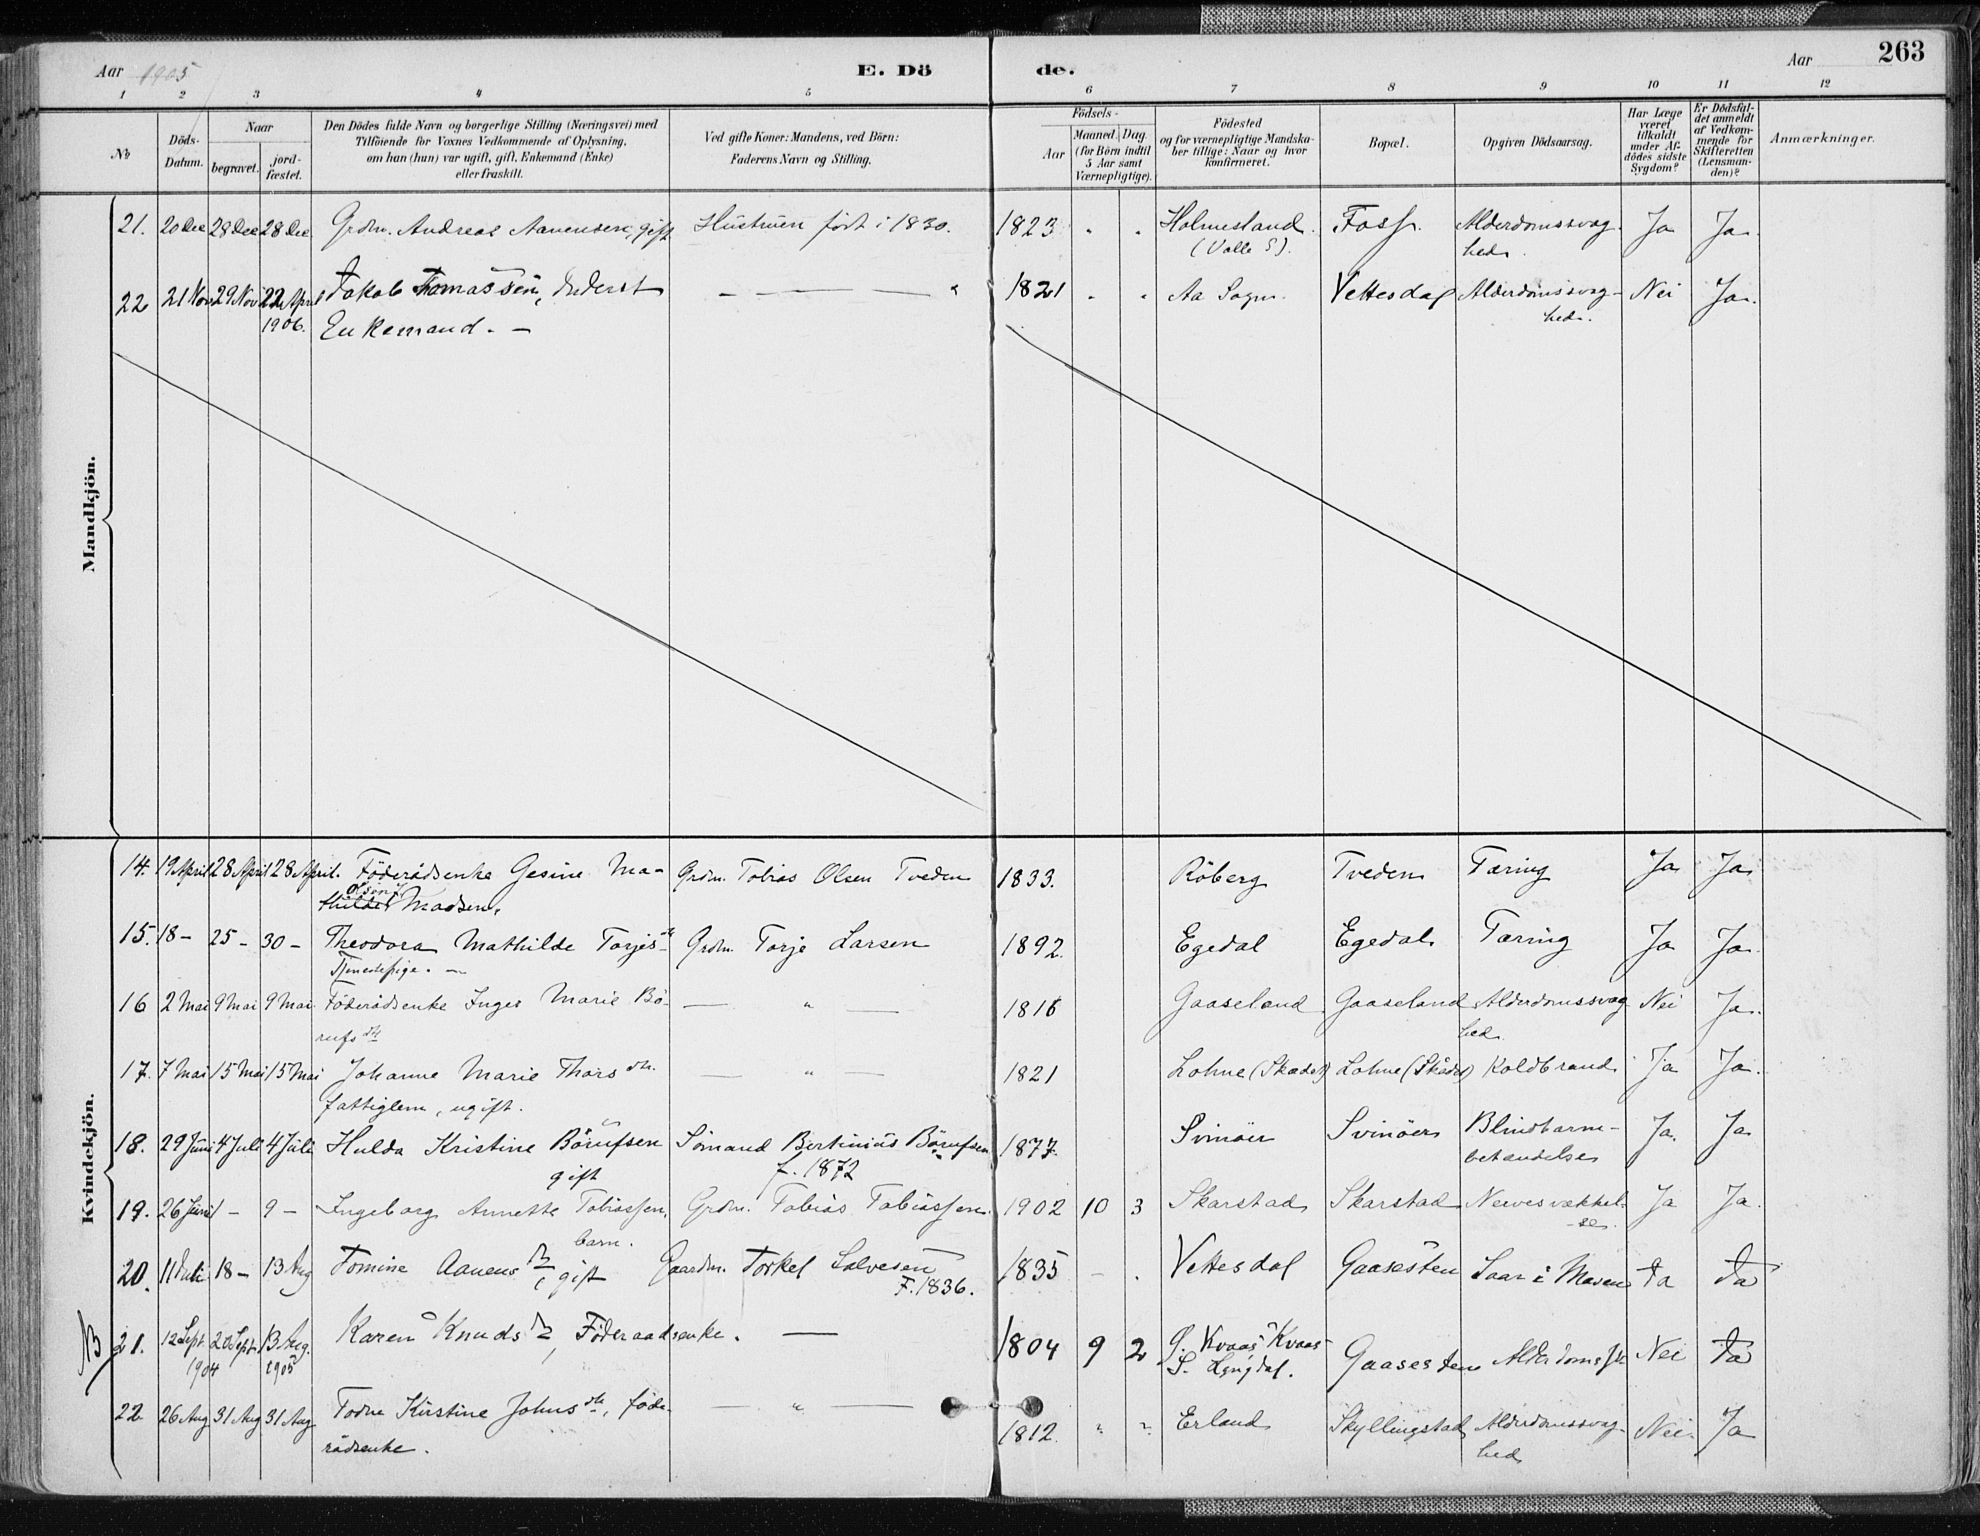 Aar 1905 E. Dö de. Aar 263
1 2 3 4 5 6 7 8 9 10 11 12
No
Döds-Datum.
Naar
begravet.
jordfæstet.
Den Dödes fulde Navn og borgerlige Stilling (Næringsvei) med
Tilföiende for Voxnes Vedkommende af Oplysning,
om han (hun) var ugift, gift, Enkemand (Enke)
eller fraskilt.
Ved gifte Koner: Mandens, ved Börn:
Faderens Navn og Stilling.
Födsels-
Aar
Maaned. Dag.
(for Börn indtil
5 Aar samt
Værnepligtige).
Födested
og for værnepligtige Mandska-
ber tillige: Naar og hvor
konfirmeret.
Bopæl.
Opgiven Dödsaarsag.
Har Læge
været
tilkaldt
under Af-
dödes sidste
Sygdom?
Er Dödsfal-
det anmeldt
af Vedkom-
mende for
Skifteretten
(Lensman-
den)?
Anmærkninger.
Mandkjön.
21. 20 Dec 28 Dec 28 Dec. Grdm. Andreas Aanensen, gift Hustruen född i 1830. 1823 Holmesland Foss. Alderdomssvag- Ja Ja.
(Valle S). hed.
22 21 Nov 29 Nov 22 April Jakob Tomassen, Inderst — — — " 1821 Aa Sogn. Vettesdal Alderdomssvag- Nei Ja.
1906. Enkemand. — hed.
Kvindekjön.
14. 19 April 28 April 28 April. Föderådsenke Gesine Ma- Grdm. Tobias Olsen Tveden 1833. Röberg Tveden Tæring Ja Ja
thilde Madsen.
15. 18 — 25 — 30 — Theodora Mathilde Torjes dt Grdm. Torje Larsen 1892. Egedal Egedal Tæring Ja Ja.
Tjenestepige. —
16 2 Mai 9 Mai 9 Mai Föderådsenke Inger Marie Bö- — " — 1816 Gaaseland Gaaseland Alderdomssvag Nei Ja.
rufs dtr hed.
17. 7 Mai 15 Mai 15 Mai Johanne Marie Thors dtr. — " — 1821 Lohne (Skadet) Lohne (Skådet) Koldbrand Ja Ja.
fattiglem, ugift.
18. 29 Juni 4 Juli 4 Juli Hulda Kristine Börufsen Sömand Bertinius Börufsen 1877. Svinöer Svinöer Blindtarm- Ja. Ja
gift f. 1872 betændelse
19. 26 Juni 1 — 9 — Ingeborg Annette Tobiassen, Grdm. Tobias Tobiassen. 1902 10 3 Skarstad Skarstad Nervesvækkel- Ja Ja.
barn. se.
20. 11 Juli 18 — 13 Aug Tomine Aanens dt, gift Gaardm. Torkel Salvesen 1835 — . Vettesdal Gaasesten Saar i Maven Ja Ja
F. 1836.
NB 21. 12 Sept. 20 Sept. 13 Aug. Karen Knuds dt, Föderaadsenke. — 1804 9 2 G. Kvaas Kvaas Gaasesten Alderdomssv. Nei Ja
1904 1905 S. Lyngdal.
22 26 Aug 31 Aug 31 Aug Todne Kirstine Johns dtr, föde- — " — 1812. " " Erland Skyllingstad Alderdomssvag- Nei. Ja
rådsenke. hed